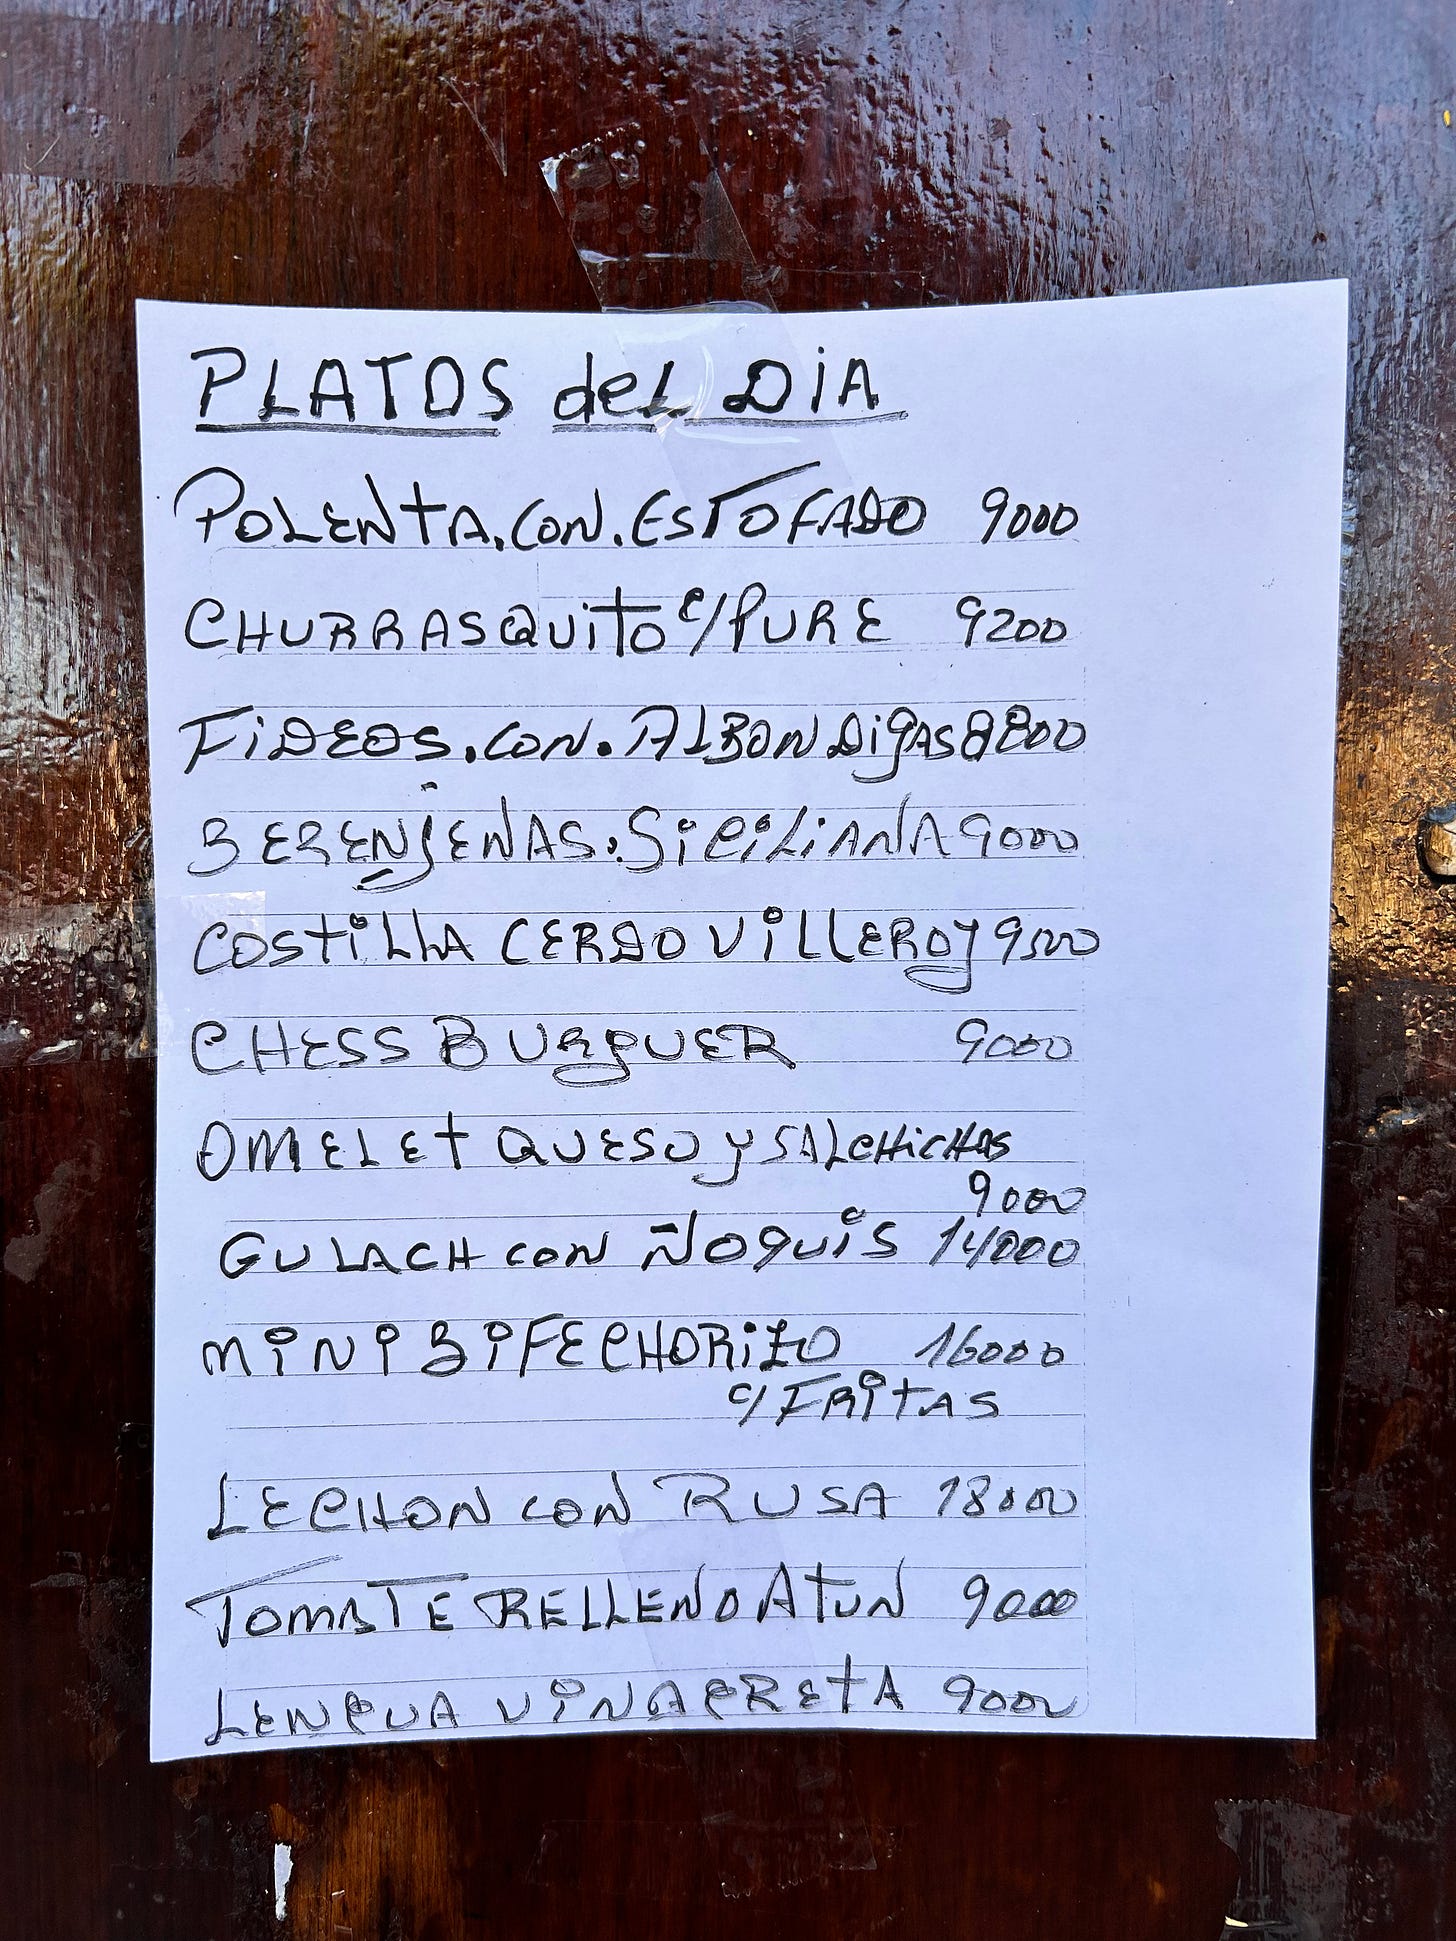 PLATOS del DiA
POLENTA.CON.ESTOFADO 9000
CHURRASQUITO c/PURE 9200
FiDEOS.CON.ALBONDigAS 8800
BERENJENAS.SiCiLiANA 9000
COSTiLLA CERDO ViLLEROY 9500
CHESS BURgUER 9000
OMELET QUESO y SALCHiCHAS
9000
GULACH CON ÑOQUiS 14000
MiNi BiFE CHORiZO 16000
c/FRiTAS
LECHON CON RUSA 18000
TOMATE RELLENO ATUN 9000
LENGUA ViNAGRETA 9000